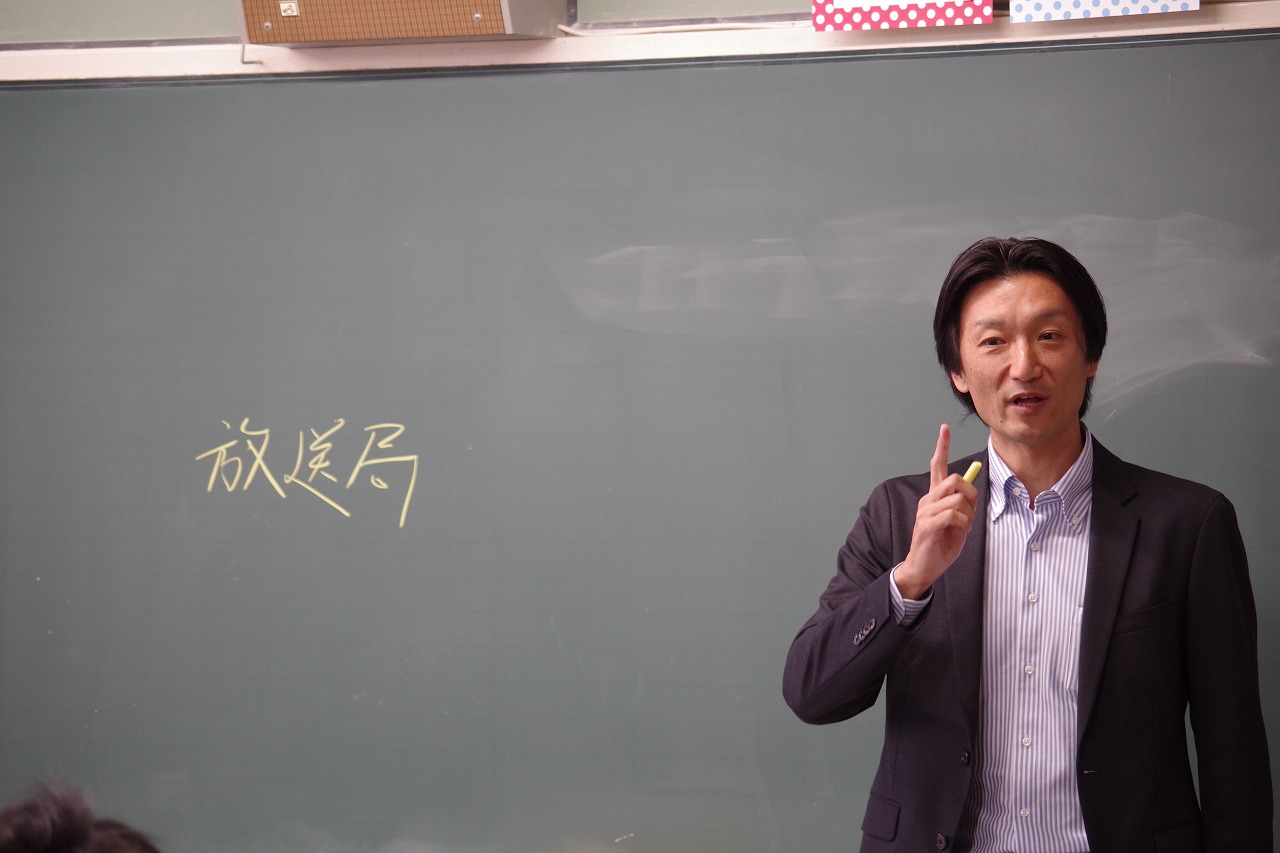 放送局